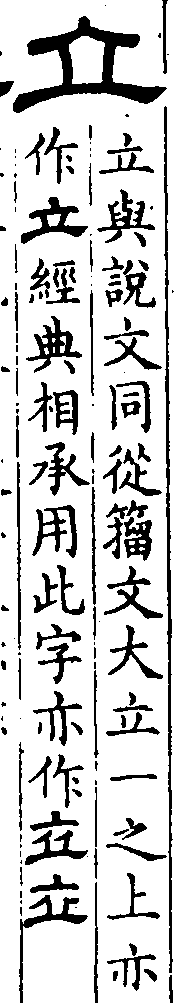 立
立與說文同從籀文大立一之上亦
作立經典相承用此字亦作